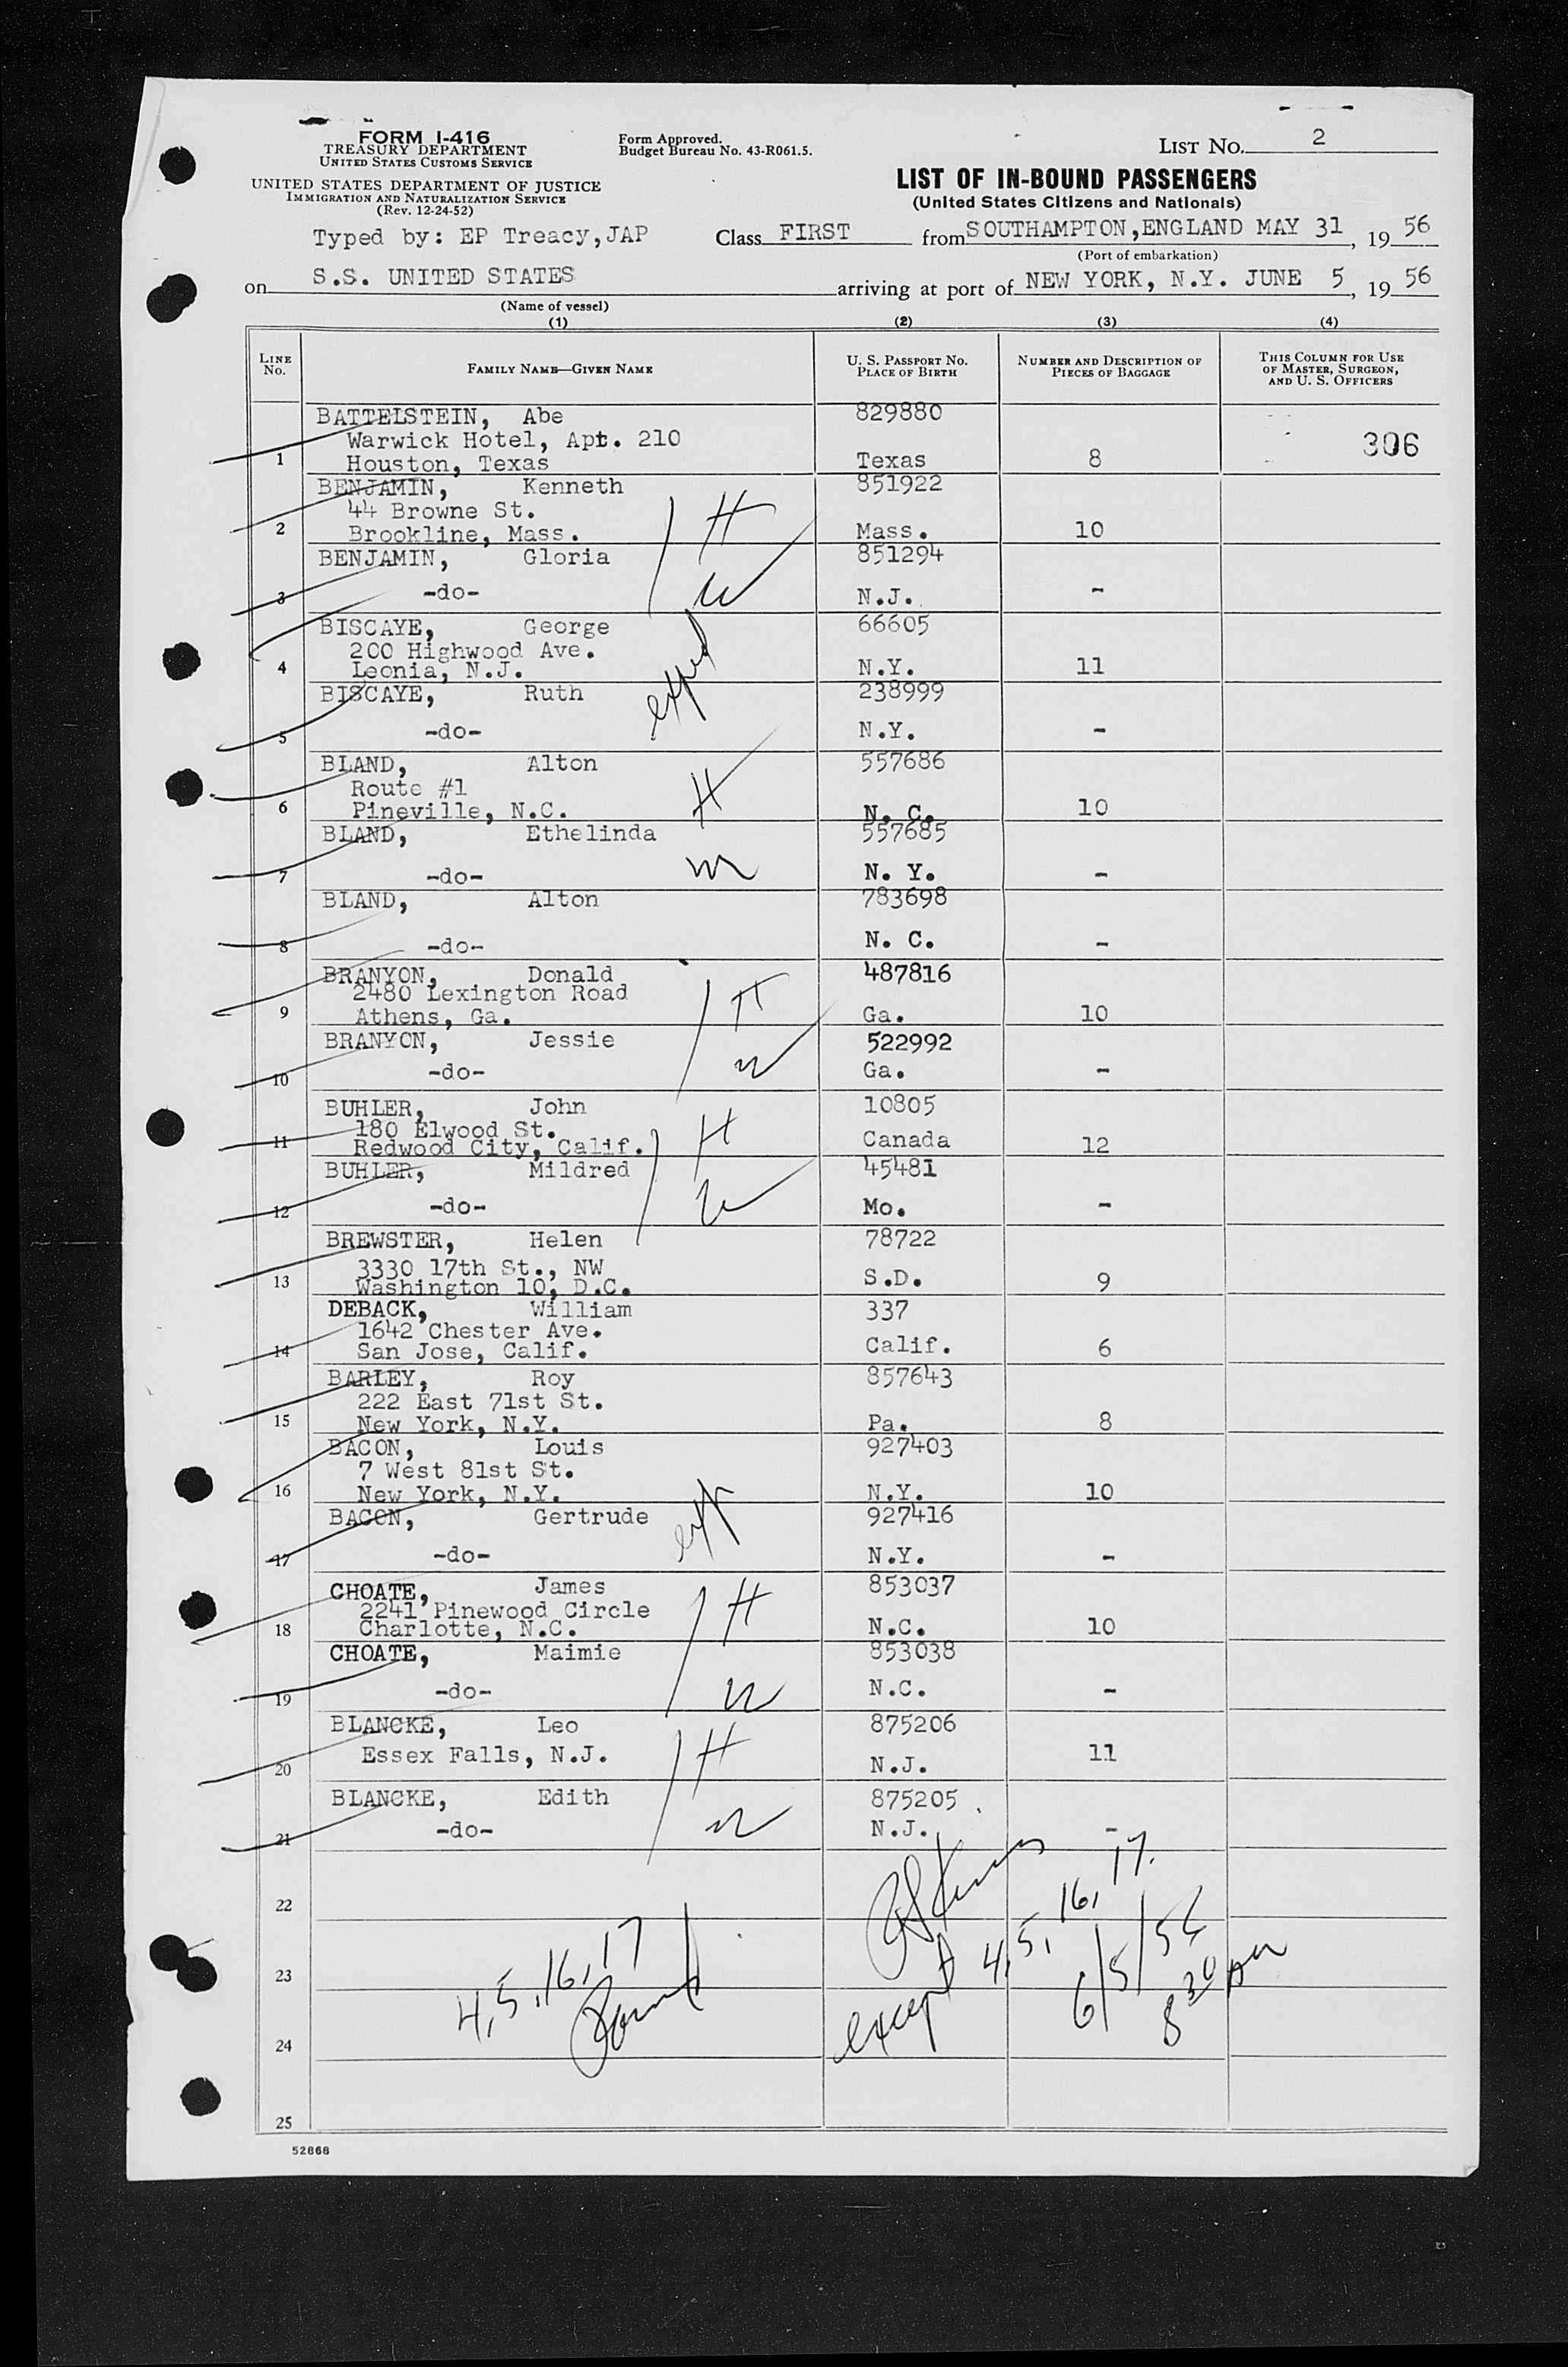 FORM I-416
TREASURY DEPARTMENT
UNITED STATES CUSTOMS SERVICE
UNITED STATES DEPARTMENT OF JUSTICE
IMMIGRATION AND NATURALIZATION SERVICE
(Rev. 12-24-52)
Form Approved.
Budget Bureau No. 43-R061.5.
LIST No. 2
LIST OF IN-BOUND PASSENGERS
(United States Citizens and Nationals)
Typed by: EP Treacy,JAP Class FIRST from SOUTHAMPTON,ENGLAND MAY 31, 19 56
(Port of embarkation)
on S.S. UNITED STATES arriving at port of NEW YORK, N.Y. JUNE 5, 19 56
(Name of vessel)
(1) (2) (3) (4)
LINE No. FAMILY NAME—GIVEN NAME U. S. PASSPORT No. PLACE OF BIRTH NUMBER AND DESCRIPTION OF PIECES OF BAGGAGE THIS COLUMN FOR USE OF MASTER, SURGEON, AND U. S. OFFICERS
BATTELSTEIN, Abe 829880
Warwick Hotel, Apt. 210 306
1 Houston, Texas Texas 8
BENJAMIN, Kenneth 851922
44 Browne St. H
2 Brookline, Mass. Mass. 10
BENJAMIN, Gloria 851294
3 -do- W N.J. -
BISCAYE, George 66605
200 Highwood Ave.
4 Leonia, N.J. N.Y. 11
BISCAYE, Ruth 238999
5 -do- N.Y. -
BLAND, Alton 557686
Route #1 H
6 Pineville, N.C. N. C. 10
BLAND, Ethelinda 557685
7 -do- N. Y. -
BLAND, Alton 783698
8 -do- N. C. -
BRANYON, Donald 487816
2480 Lexington Road H
9 Athens, Ga. Ga. 10
BRANYON, Jessie 522992
10 -do- W Ga. -
BUHLER, John 10805
180 Elwood St. H
11 Redwood City, Calif. Canada 12
BUHLER, Mildred 45481
12 -do- W Mo. -
BREWSTER, Helen 78722
3330 17th St., NW
13 Washington 10, D.C. S.D. 9
DEBACK, William 337
1642 Chester Ave.
14 San Jose, Calif. Calif. 6
BARLEY, Roy 857643
222 East 71st St.
15 New York, N.Y. Pa. 8
BACON, Louis 927403
7 West 81st St.
16 New York, N.Y. N.Y. 10
BACON, Gertrude 927416
17 -do- N.Y. -
CHOATE, James 853037
2241 Pinewood Circle H
18 Charlotte, N.C. N.C. 10
CHOATE, Maimie 853038
19 -do- W N.C. -
BLANCKE, Leo 875206
20 Essex Falls, N.J. H N.J. 11
BLANCKE, Edith 875205
21 -do- W N.J. -
22
except 4,5,16,17.
23
4,5,16,17
6/5/56
8 30 AM
24
25
52868